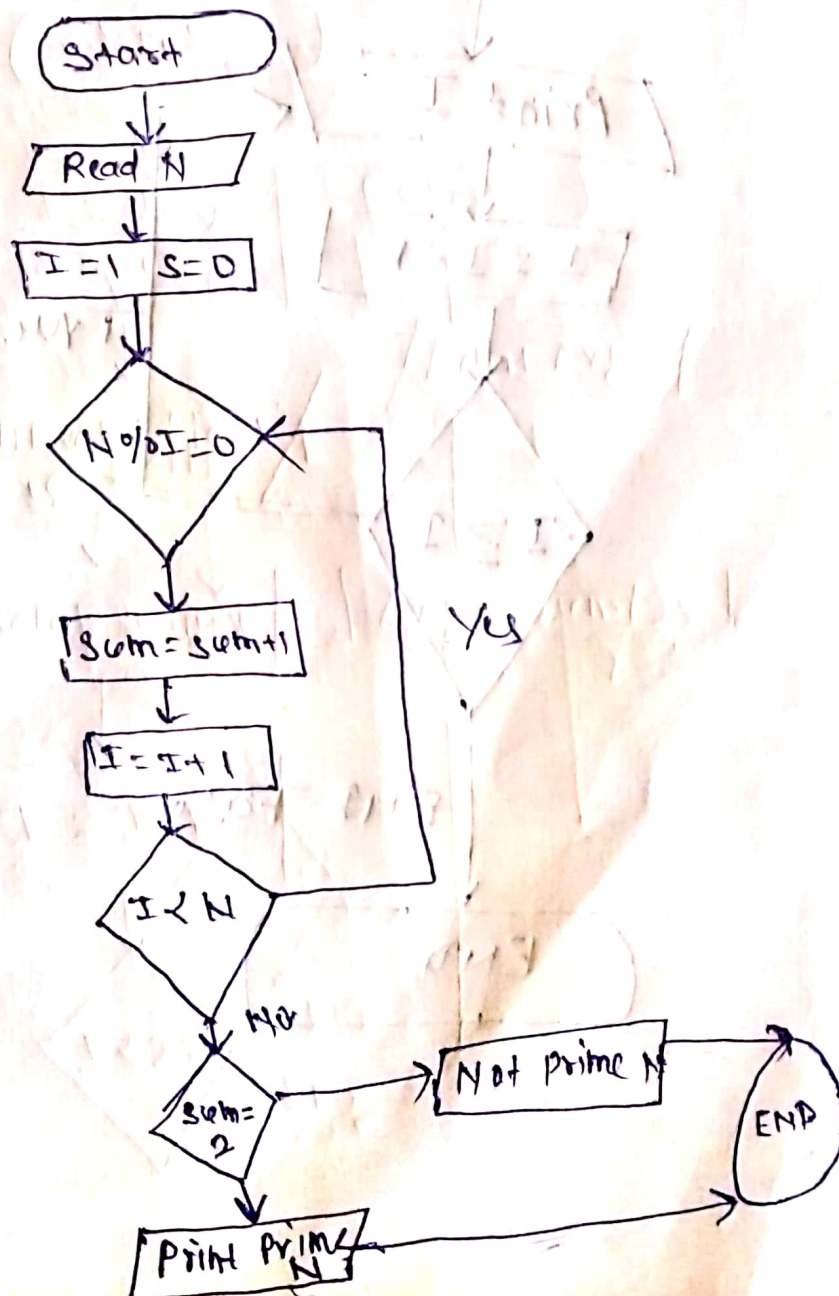 Start
Read N
I=1 S=0
N%I=0
Sum=sum+1
I=I+1
Yes
I<N
No
Sum=
2
Not prime N
END
Print Prime
N